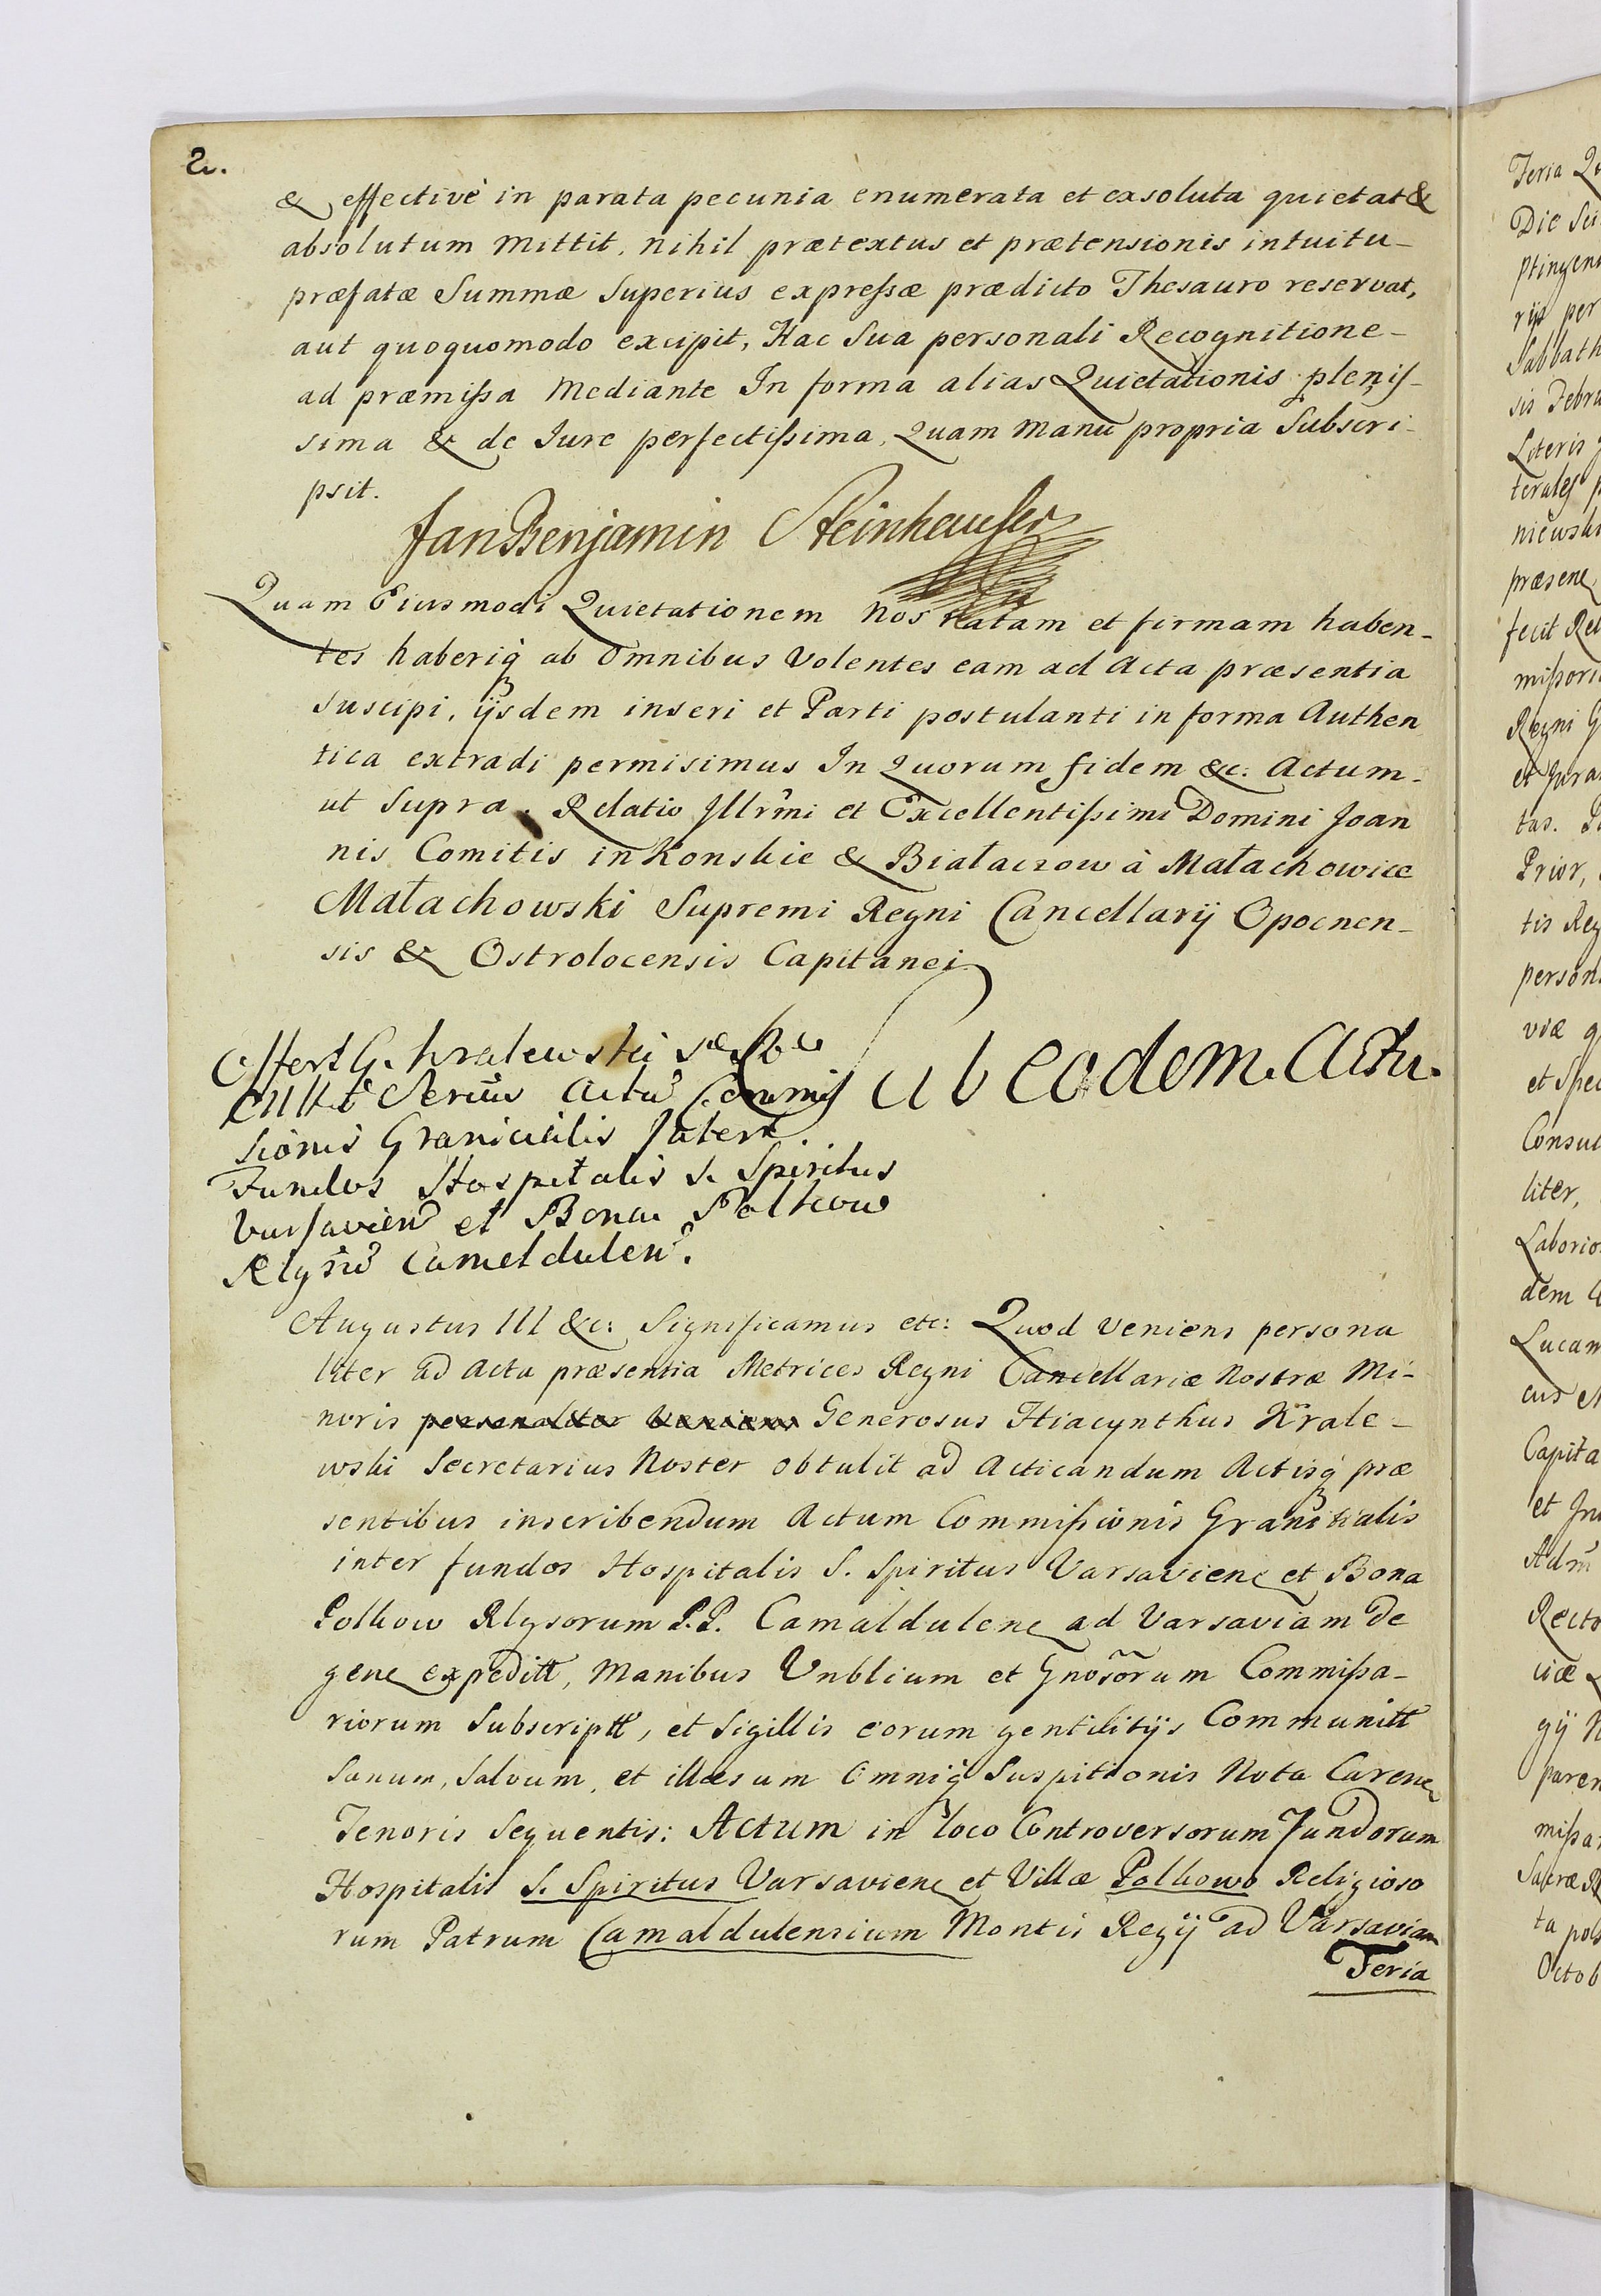 2.
& effectivè in parata pecunia enumerata et exsoluta quietat &
absolutum mittit, nihil prætextus et prætensionis intuitu
præfatæ Summæ Superius expressæ prædicto Thesauro reservat,
aut quoquomodo excipit, Hac Sua personali Recognitione
ad præmissa Mediante In forma alias Quietationis plenis-
sima & de Jure perfectissima, Quam manu propria Subscri-
psit.
Jan Benjamin Steinhauser
Quam Eiusmodi Quietationem Nos ratam et firmam haben-
tes haberiq ab omnibus Volentes eam ad Acta præsentia
Suscipi, ijsdem inseri et Parti postulanti in forma Authen
tica extradi permisimus In Quorum fidem &c: Actum
ut Supra. Relatio Illrmi et Excellentissimi Domini Joan
nis Comitis in Konskie & Białaczow à Małachowice
Małachowski Supremi Regni Cancellarij Opocnen-
sis & Ostrolocensis Capitanei
Offert G. Kralewski
Actu Commis
sionis Granicialis Inter
Fundos Hospitalis S. Spiritus
Varsavien et Bona Polkow
Cameldulen.
Sub eodem Actu.
Augustus III &c: Significamus etc: Quod Veniens persona
liter ad Acta præsentia Metrices Regni Cancellariæ Nostræ Mi-
noris personaliter Veniens Generosus Hiacynthus Krale-
wski Secretarius Noster obtulit ad Acticandum Actisq præ
sentibus inscribendum Actum Commissionis Granitialis
inter fundos Hospitalis S. Spiritus Varsavien et Bona
Polkow Rlgsorum P.P. Camaldulen ad Varsaviam de
gen expeditt, Manibus Vnblium et Gnosorum Commissa-
riorum Subscriptt, et Sigillis eorum gentilitijs Communitt
Sanum, Salvum, et illæsum Omniq Suspitionis Nota Caren
Tenoris Sequentis: Actum in loco Controversorum Fundorum
Hospitalis S. Spiritus Varsavien et Villæ Polkowo Religioso
rum Patrum Camaldulensium Montis Regij ad Varsaviam
Feria